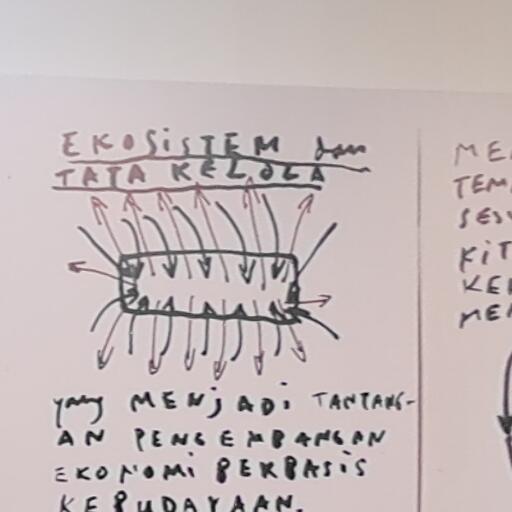 EKOSiSTEM dan
TATA KELOLA
yang MENjADi TANTANG-
AN PENGEMBANGAN
EKONOMi BERBASiS
KEBUDAYAAN.
ME
TEM
SES
KiT
KE
ME